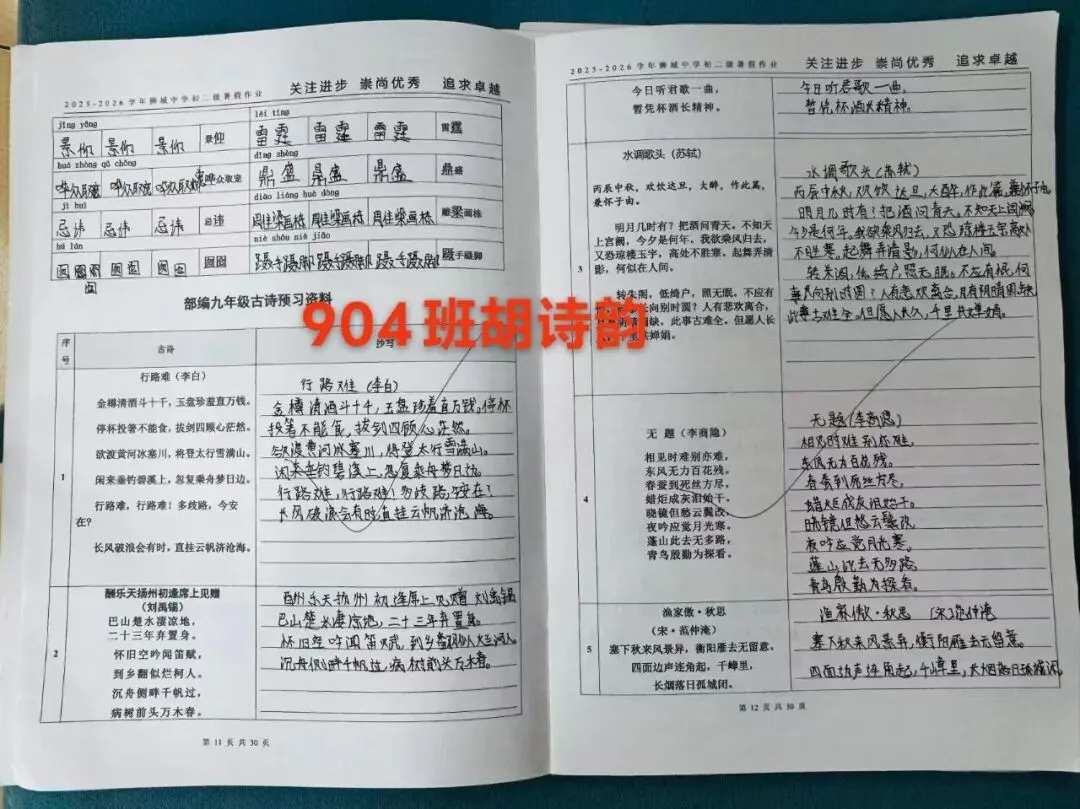 2025-2026学年狮城中学初二级暑假作业 关注进步 崇尚优秀 追求卓越
jǐng yǎng
léi tíng
景仰 景仰 景仰 景仰
雷霆 雷霆 雷霆 雷霆
huá zhòng qǔ chǒng
dǐng shèng
哗众取宠 哗众取宠 哗众取宠 哗众取宠
鼎盛 鼎盛 鼎盛 鼎盛
jì huì
diāo liáng huà dòng
忌讳 忌讳 忌讳 忌讳
雕梁画栋
hú lún
niè shǒu niè jiǎo
囫囵
蹑手蹑脚 蹑手蹑脚 蹑手蹑脚 蹑手蹑脚
部编九年级古诗预习资料
904班胡诗韵
序号 古诗 抄写
1
行路难(李白)
金樽清酒斗十千,玉盘珍羞直万钱。
停杯投箸不能食,拔剑四顾心茫然。
欲渡黄河冰塞川,将登太行雪满山。
闲来垂钓碧溪上,忽复乘舟梦日边。
行路难,行路难!多歧路,今安
在?
长风破浪会有时,直挂云帆济沧海。
行路难(李白)
金樽清酒斗十千,玉盘珍羞直万钱。停杯
投箸不能食,拔剑四顾心茫然。
欲渡黄河冰塞川,将登太行雪满山。
闲来垂钓碧溪上,忽复乘舟梦日边。
行路难,行路难,多歧路,今安在?
长风破浪会有时直挂云帆济沧海。
2
酬乐天扬州初逢席上见赠
(刘禹锡)
巴山楚水凄凉地,
二十三年弃置身。
怀旧空吟闻笛赋,
到乡翻似烂柯人。
沉舟侧畔千帆过,
病树前头万木春。
酬乐天扬州初逢席上见赠 刘禹锡
巴山楚水凄凉地,二十三年弃置身。
怀旧空吟闻笛赋,到乡翻似烂柯人。
沉舟侧畔千帆过,病树前头万木春。
第 11 页 共 30 页
2025-2026学年狮城中学初二级暑假作业 关注进步 崇尚优秀 追求卓越
今日听君歌一曲,
暂凭杯酒长精神。
今日听君歌一曲。
暂凭杯酒长精神。
3
水调歌头(苏轼)
丙辰中秋,欢饮达旦,大醉,作此篇,
兼怀子由。
明月几时有?把酒问青天。不知天
上宫阙,今夕是何年。我欲乘风归去,
又恐琼楼玉宇,高处不胜寒。起舞弄清
影,何似在人间。
转朱阁,低绮户,照无眠。不应有
长向别时圆?人有悲欢离合,
缺,此事古难全。但愿人长
婵娟。
水调歌头(苏轼)
丙辰中秋,欢饮达旦,大醉,作此篇,兼怀子由。
明月几时有?把酒问青天。不知天上宫阙
今夕是何年。我欲乘风归去,又恐琼楼玉宇高处
不胜寒。起舞弄清影,何似在人间。
转朱阁,低绮户,照无眠。不应有恨,何
事长向别时圆?人有悲欢离合,月有阴晴圆缺
此事古难全。但愿人长久,千里共婵娟。
4
无 题(李商隐)
相见时难别亦难,
东风无力百花残。
春蚕到死丝方尽,
蜡炬成灰泪始干。
晓镜但愁云鬓改,
夜吟应觉月光寒。
蓬山此去无多路,
青鸟殷勤为探看。
无题(李商隐)
相见时难别亦难,
东风无力百花残。
春蚕到死丝方尽,
蜡炬成灰泪始干。
晓镜但愁云鬓改
夜吟应觉月光寒。
蓬山此去无多路
青鸟殷勤为探看。
5
渔家傲·秋思
(宋·范仲淹)
塞下秋来风景异,衡阳雁去无留意。
四面边声连角起,千嶂里,
长烟落日孤城闭。
渔家傲·秋思 (宋)范仲淹
塞下秋来风景异,衡阳雁去无留意。
四面边声连角起,千嶂里,长烟落日孤城闭
第 12 页 共 30 页